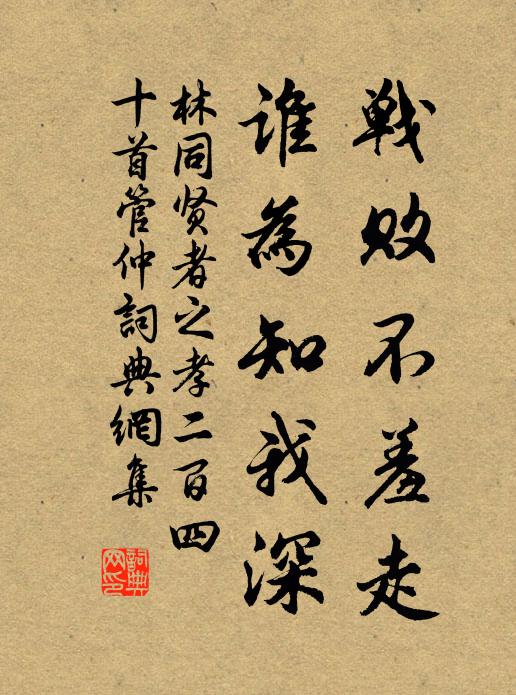 戦敗不羞走
誰為知我深
林同贤者之孝二百四
十首管仲詞典網集
詞典网印